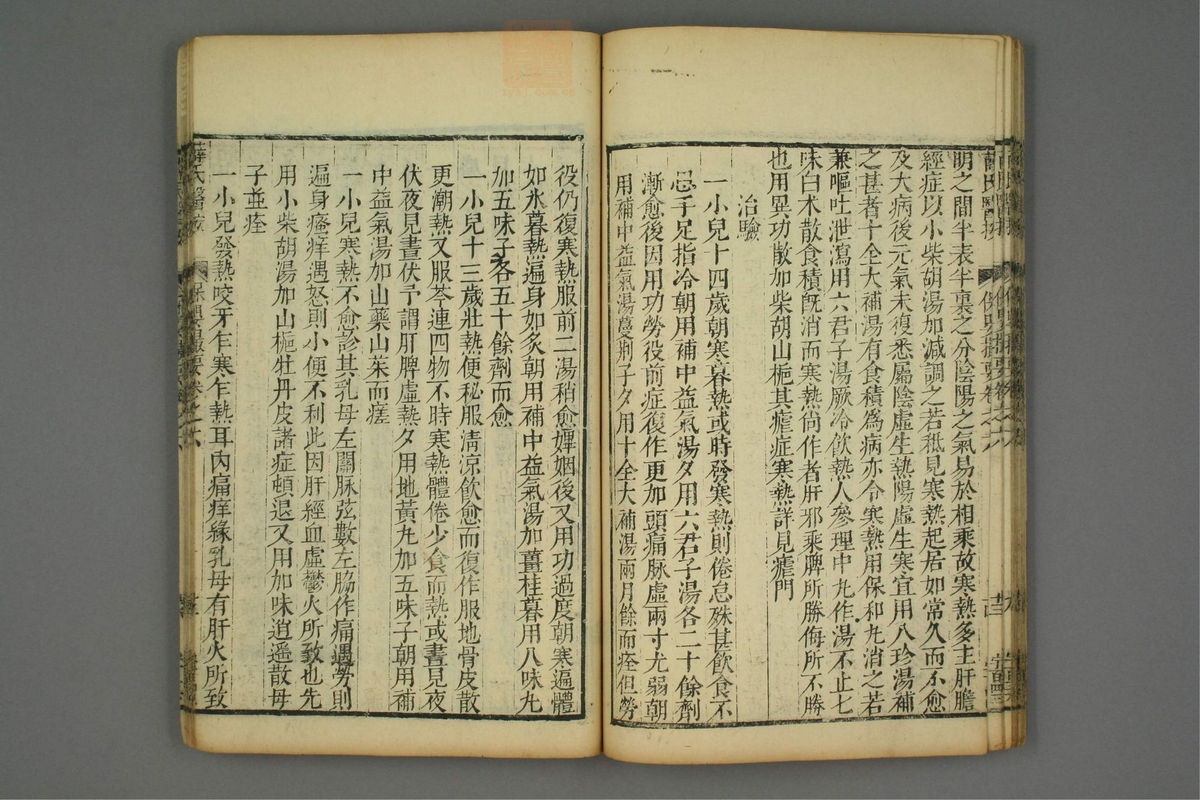 明之間半表半裏之分陰陽之氣易於相乘故寒熱多主肝膽
經症以小柴胡湯加減調之若秪見寒熱起居如常久而不愈
及大病後元氣未復悉屬陰虛生熱陽虛生寒宜用八珍湯補
之甚者十全大補湯有食積爲病亦令寒熱用保和丸消之若
兼嘔吐泄瀉用六君子湯厥冷飲熱人參理中丸作湯不止七
味白朮散食積旣消而寒熱尚作者肝邪乘脾所勝侮所不勝
也用異功散加柴胡山梔其瘧症寒熱詳見瘧門
治驗
一小兒十四歲朝寒暮熱或時發寒熱則倦怠殊甚飲食不
思手足指冷朝用補中益氣湯夕用六君子湯各二十餘劑
漸愈後因用功勞役前症復作更加頭痛脉虛兩寸尤弱朝
用補中益氣湯蔓荆子夕用十全大補湯兩月餘而痊但勞
役仍復寒熱服前二湯稍愈嬋姻後又用功過度朝寒遍體
如氷暮熱遍身如炙朝用補中益氣湯加薑桂暮用八味丸
加五味子各五十餘劑而愈
一小兒十三歲壯熱便秘服清凉飲愈而復作服地骨皮散
更潮熱又服芩連四物不時寒熱體倦少食而熱或晝見夜
伏夜見晝伏予謂肝脾虛熱夕用地黃丸加五味子朝用補
中益氣湯加山藥山茱而瘥
一小兒寒熱不愈診其乳母左關脉弦數左脇作痛遇勞則
遍身瘙痒遇怒則小便不利此因肝經血虛鬱火所致也先
用小柴胡湯加山梔牡丹皮諸症頓退又用加味逍遥散母
子並痊
一小兒發熱咬牙乍寒乍熱耳內痛痒緣乳母有肝火所致
薛氏醫按
保嬰撮要卷之六